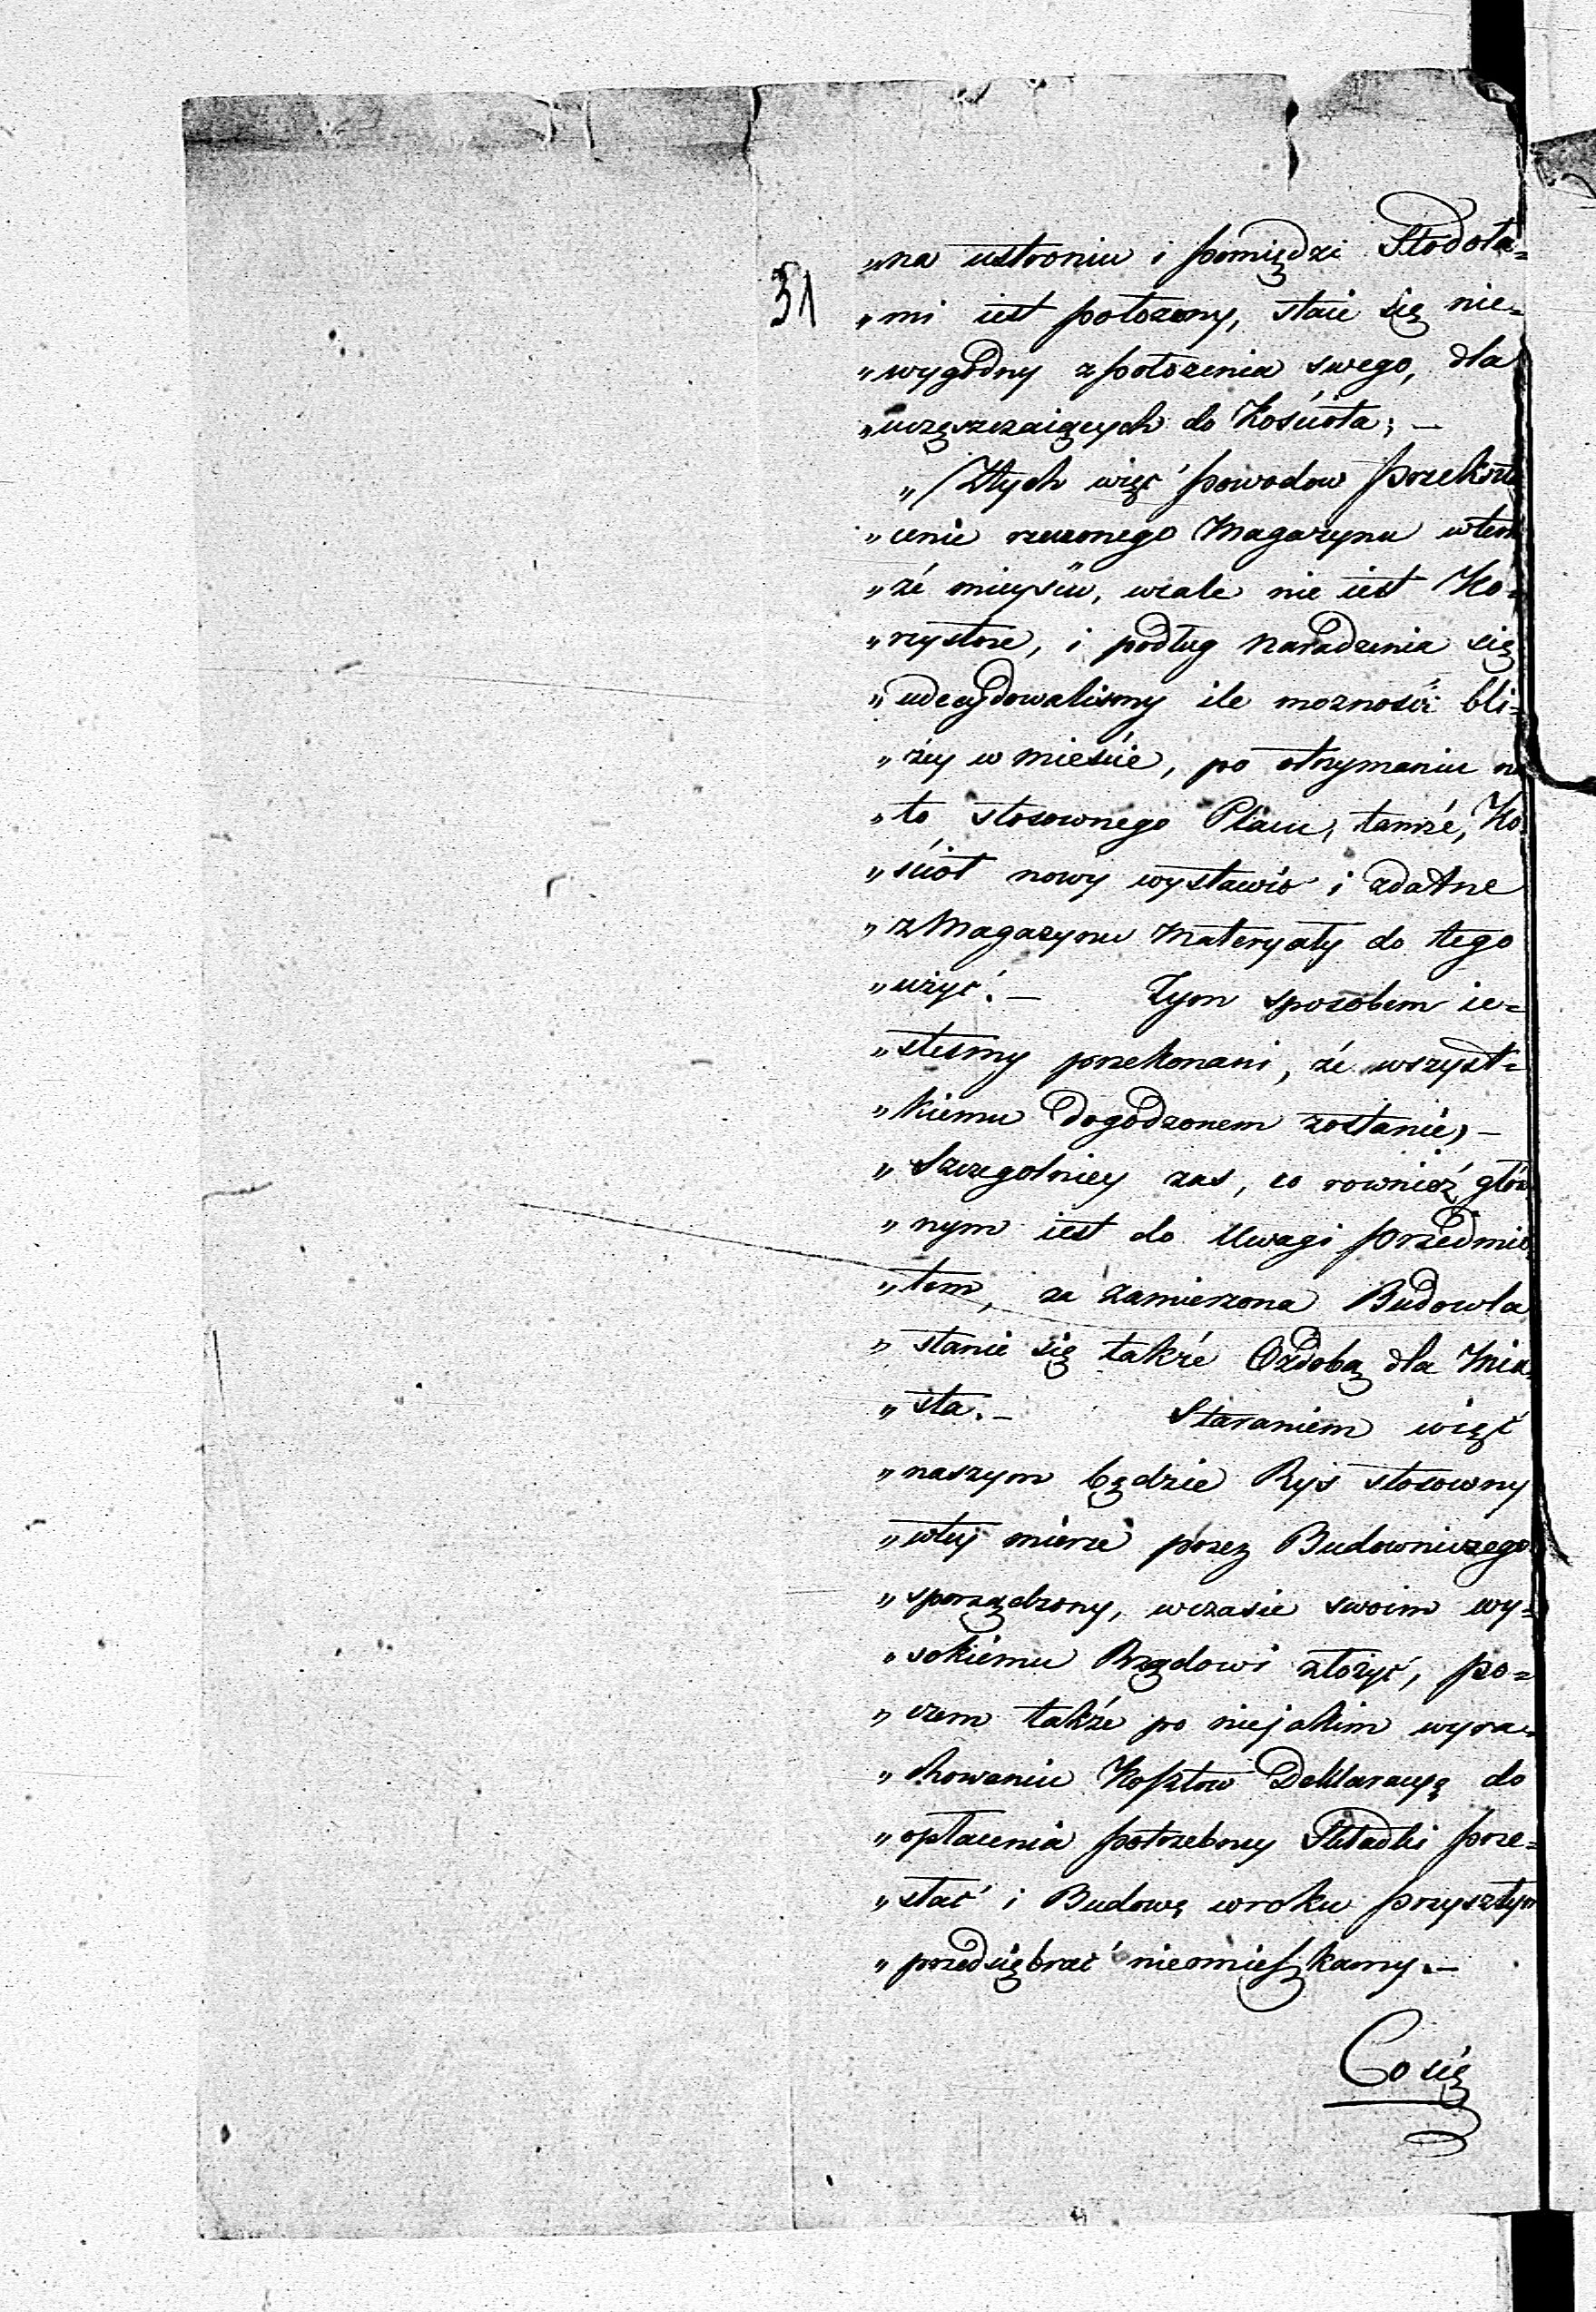 31
„na ustroniu i pomiędzi Stodoła=
„mi iest położony, staie się nie=
„wygodny z położenia swego, dla
„uczęszczaiących do Kościoła; —
„Ztych więc powodow przekszta
„cenie rzeczonego Magazynu wtem
„że mieyscu, wcale nie iest Ko=
„rzystne, i podług naradzenia się
„udecydowalismy ile moznosci bli=
„żey w mieście, po otrzymaniu na
„to stosownego Placu, tamże, Ko
„ścioł nowy wystawić i zdatne
„z Magazynu Materyały do tego
„użyć. — Tym sposobem ie=
„stesmy przekonani, że wszyst=
„kiemu dogodzonem zostanie, —
„Szczegolniey zas, co rownież głów
„nym iest do Uwagi przedmio
„tem, ze zamierzona Budowla
„stanie się także Ozdobą dla Mia
„sta. — Staraniem więc
„naszym będzie Rys stosowny
„wtey mierze przez Budowniczego
„sporządzony, wczasie swoim wy=
„sokiemu Rządowi złożyć, po=
„czem także po niejakim wyra=
„chowaniu Kosztow Deklaracyą do
„opłacenia potrzebney Składki prze=
„słać i Budowę wroku przyszłym
„przedsiębrać nieomieszkamy. —
Co się